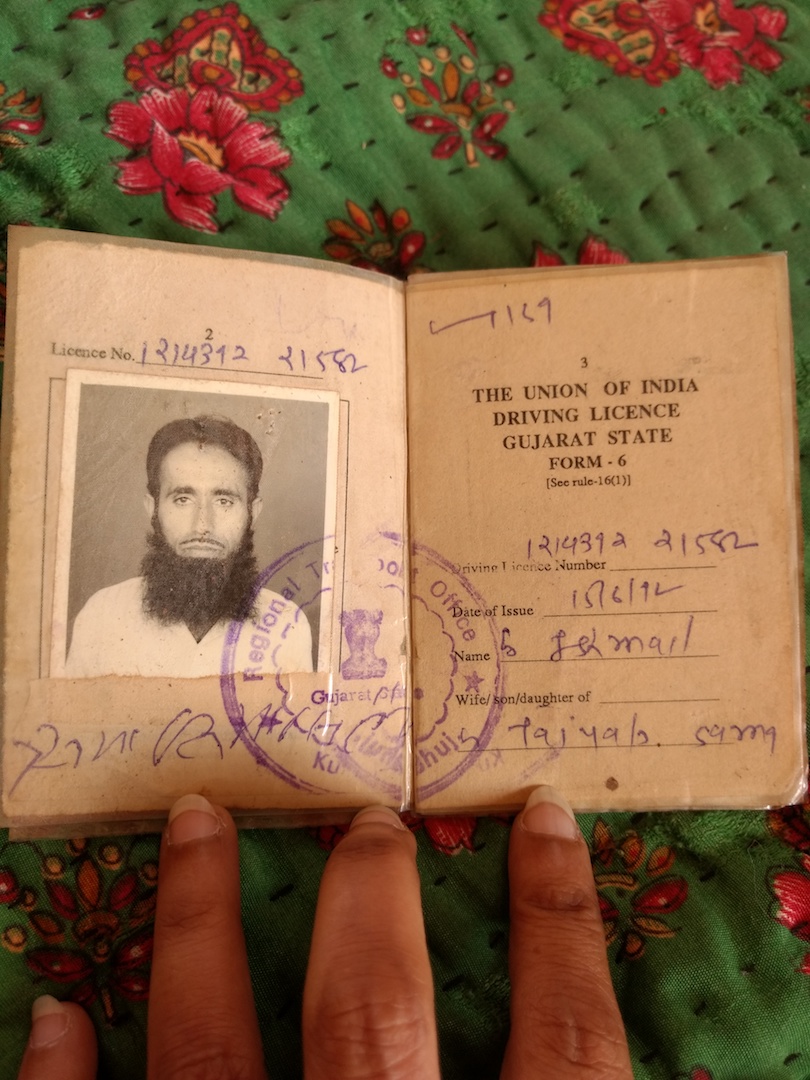 2
Licence No. 1214392 21582
Regional Transport Office
Gujarat
Ku
Bhuj
169
3
THE UNION OF INDIA
DRIVING LICENCE
GUJARAT STATE
FORM - 6
[See rule-16(1)]
Driving Licence Number 1214392 21582
Date of Issue 15/6/92
Name Ismail
Wife/son/daughter of
Taiyab. sama